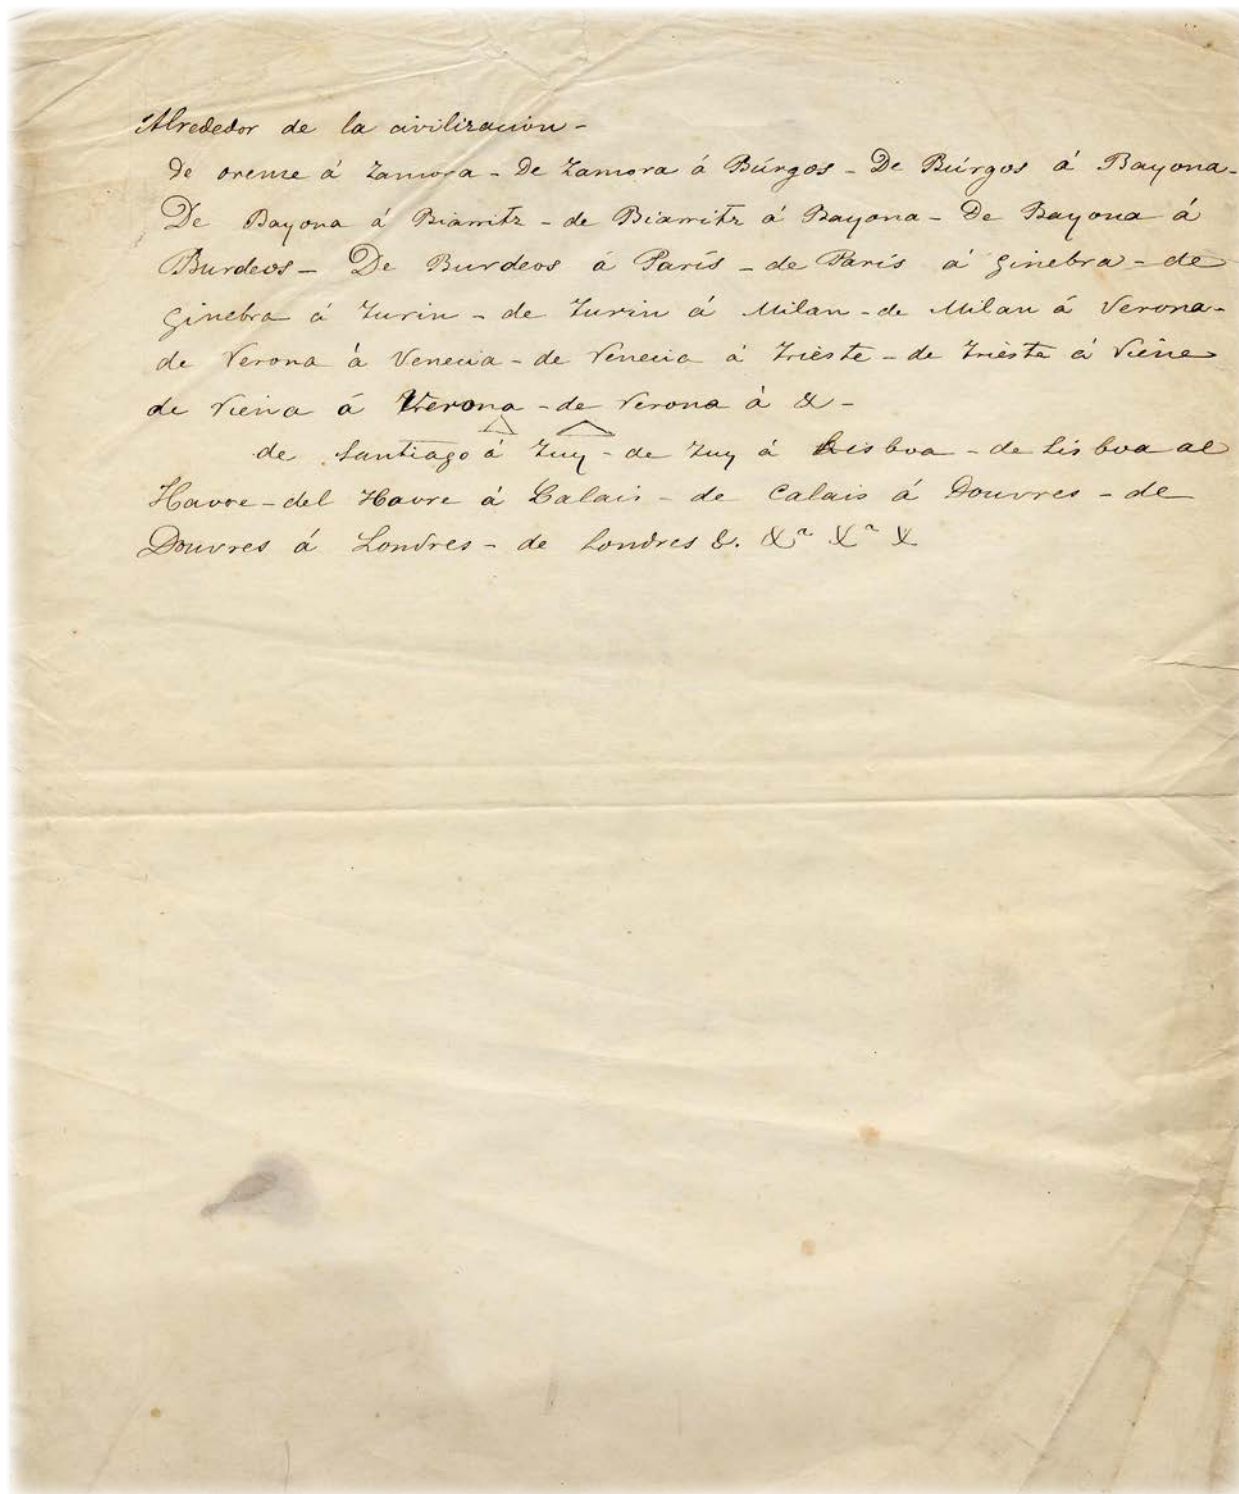 Alrededor de la civilización -
De orense á Zamora - De Zamora á Búrgos - De Búrgos á Bayona -
De Bayona á Biarritz - de Biarritz á Bayona - De Bayona á
Burdeos - De Burdeos á París - de París á ginebra - de
ginebra á Turin - de Turin á Milan - de Milan á Verona -
de Verona á Venecia - de Venecia á Trieste - de Trieste á Viena
de Viena á Verona - de Verona á & -
de Santiago á Tuy - de Tuy á Lisboa - de Lisboa al
Havre - del Havre á Calais - de Calais á Douvres - de
Douvres á Londres - de Londres &. &ª &ª &